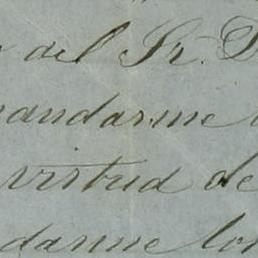 del Sr. D
mandarme
virtud de
darme los